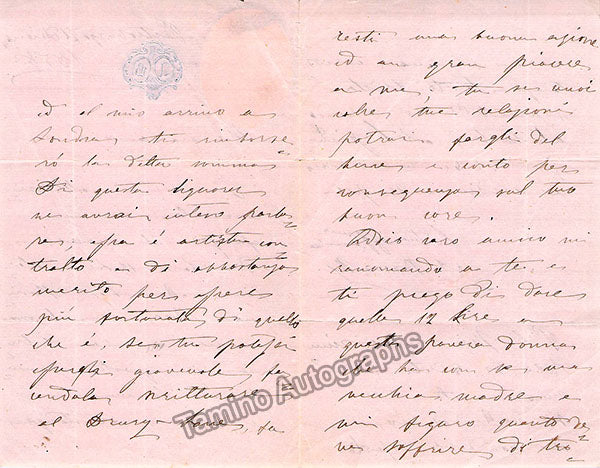 ed al mio arrivo a
Londra ti rimborse=
rò la detta somma=
Di questa signora
ne avrai inteso parla=
re, essa è artista con=
tralto e di abbastanza
merito per essere
più fortunata di quello
che è, se tu potessi
esserle giovevole, fa=
cendola scritturare
al Drury-Lane, fa=
resti una buona azione
ed un gran piacere
a me, tu se vuoi
colle tue relazioni
potrai fargli del
bene e conto per
conseguenza sul tuo
buon core.
Addio caro amico mi
raccomando a te, e
ti prego di dare
quelle 12 lire a
questa povera donna
che ha con se una
vecchia madre e
mi figuro quanto de=
ve soffrire di tro=
Tamino Autographs